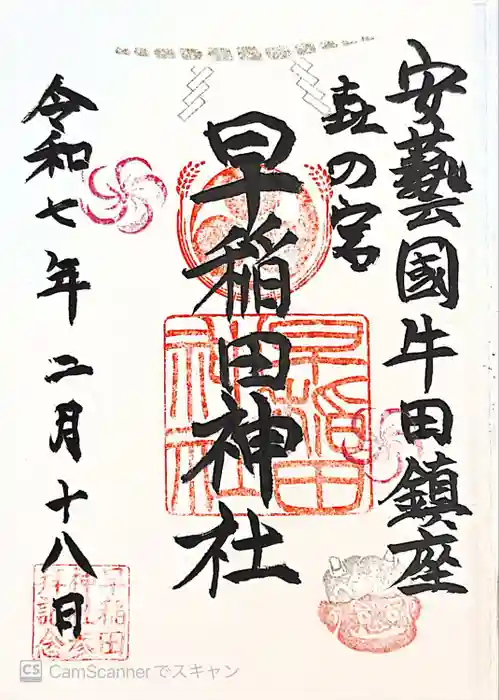 安藝國牛田鎮座
㐂の宮
早稲田神社
令和七年二月十八日
早稲田神社
早稲田神社参拝記念
CS CamScannerでスキャン